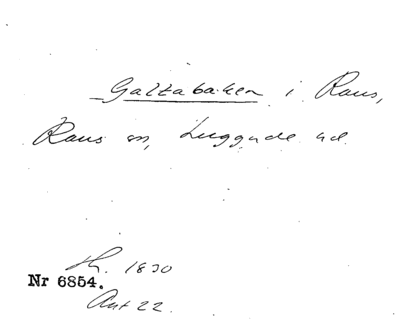 Galtabaken i Raus,
Raus sn, Luggude hd.
Th. 1830
Nr 6854.
Ant 22.